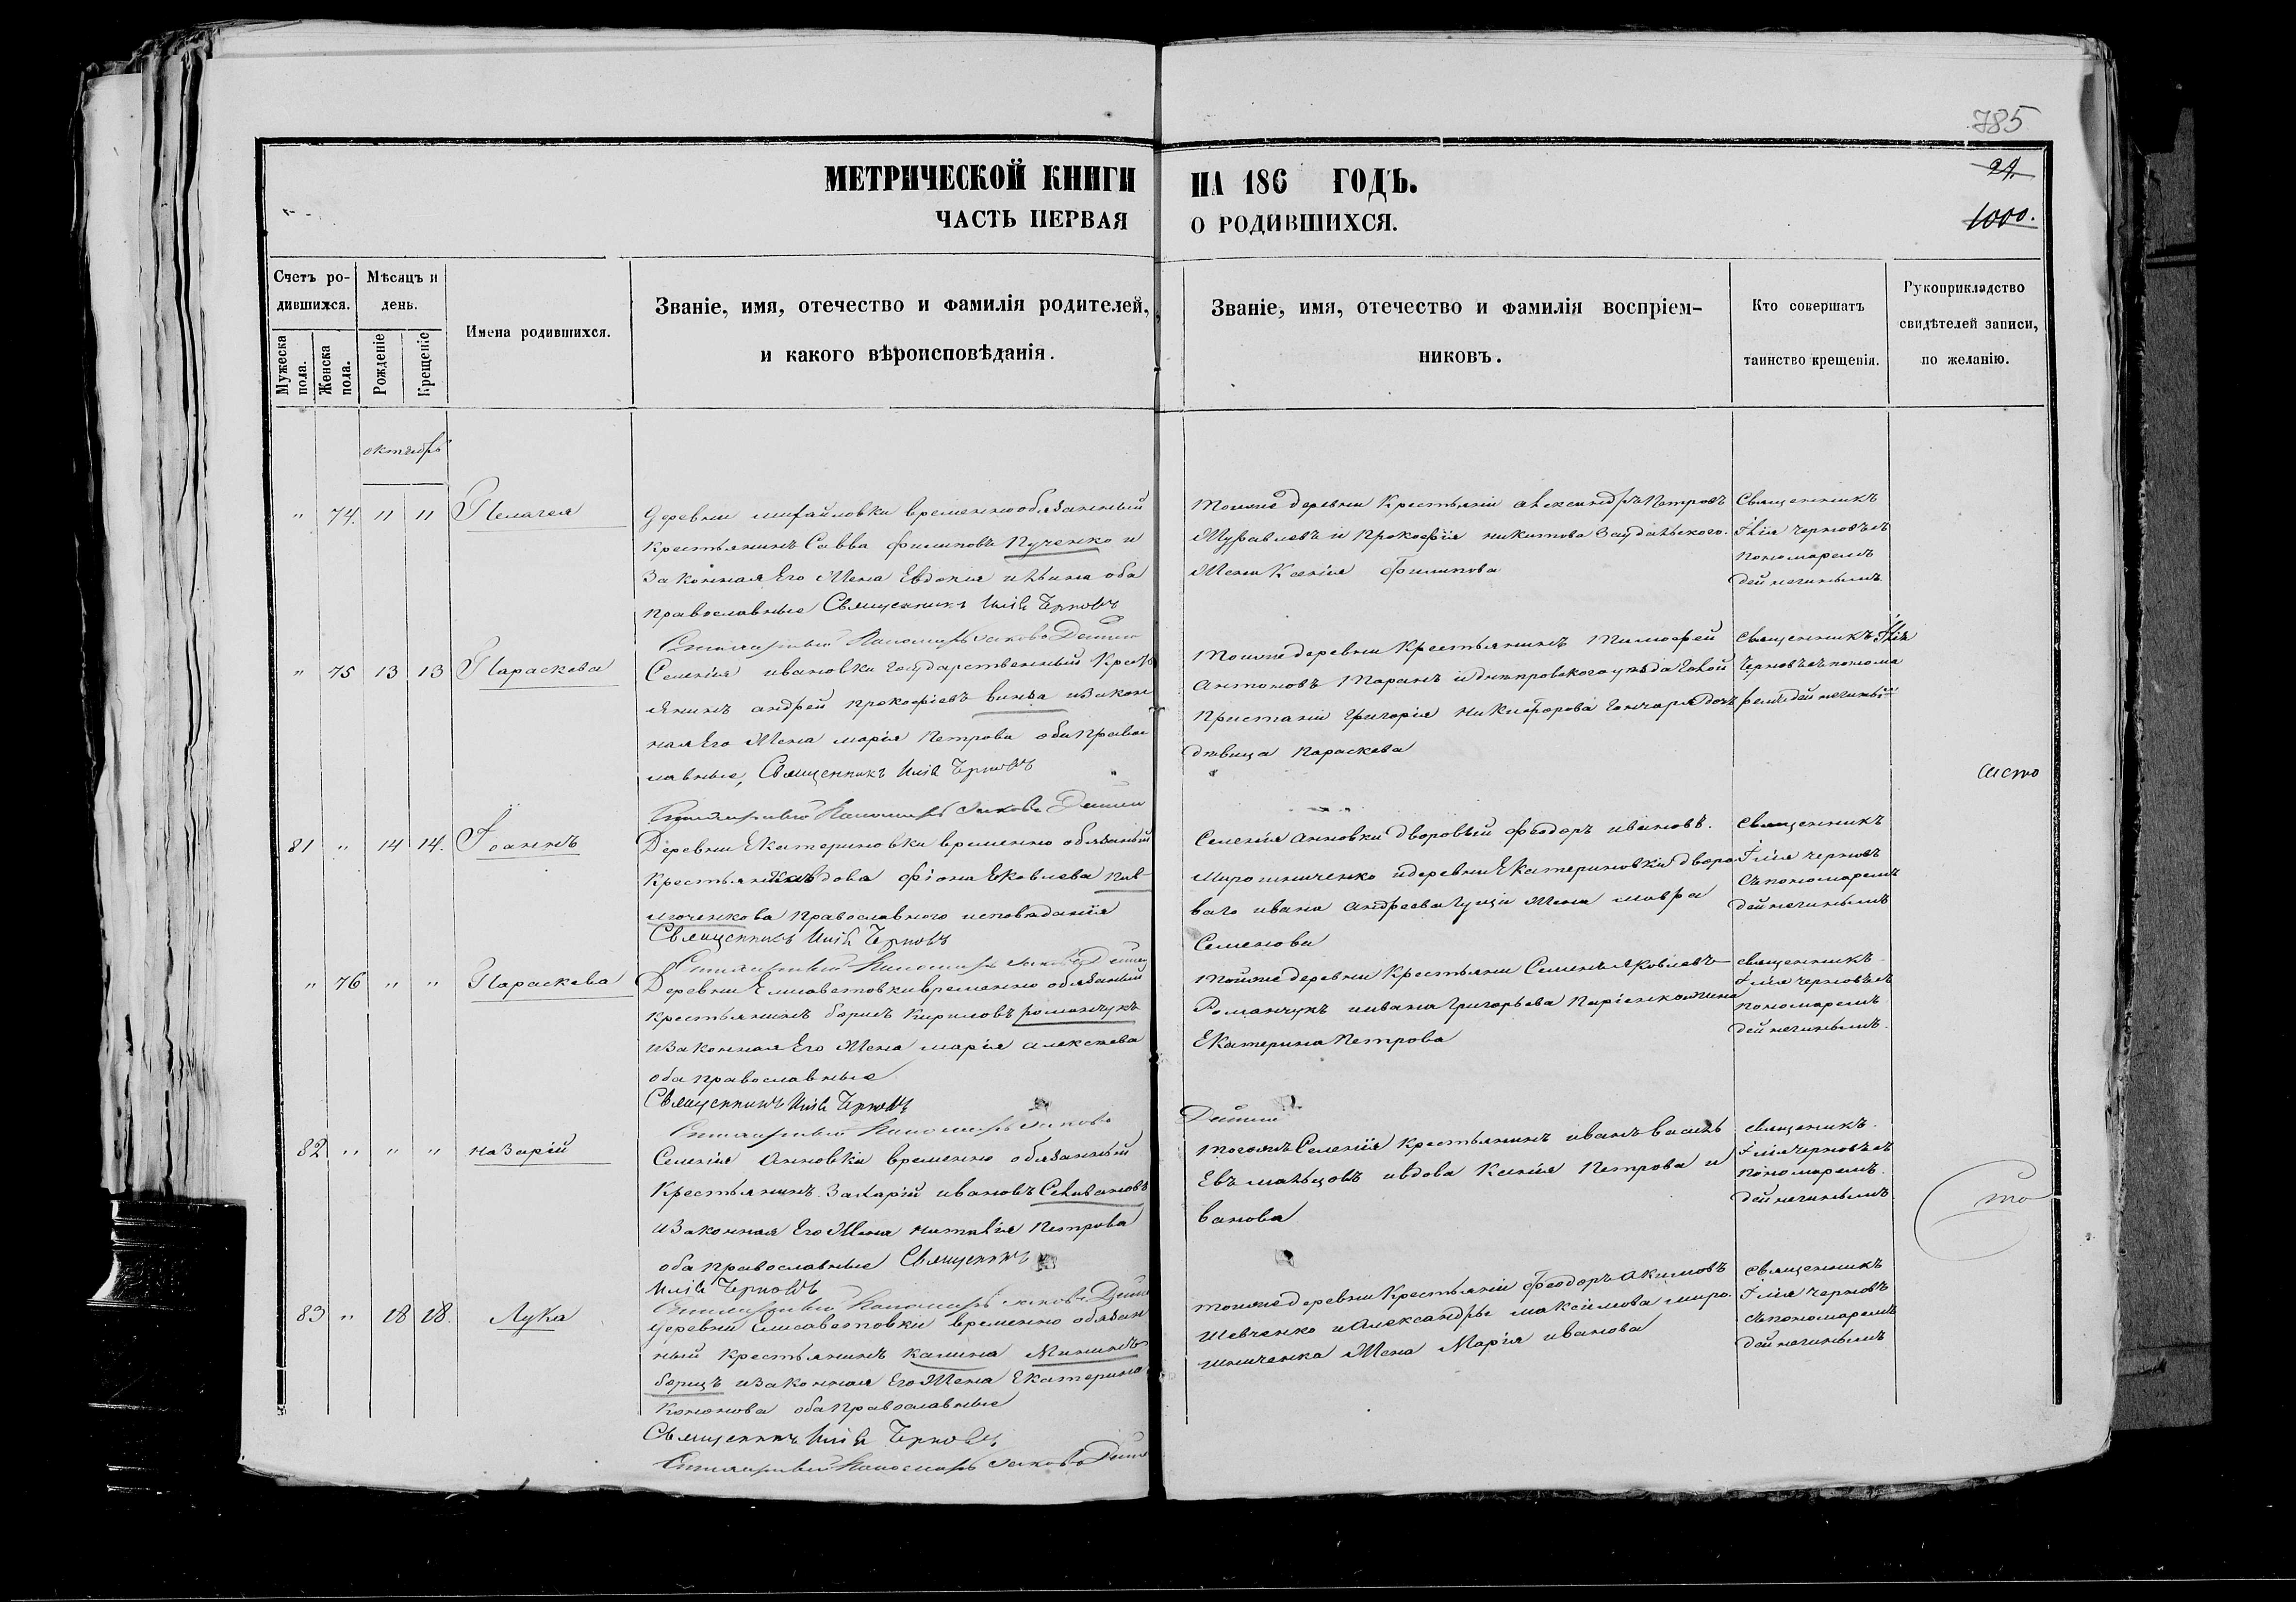 785
МЕТРИЧЕСКОЙ КНИГИ НА 186 ГОДЪ.
24.
ЧАСТЬ ПЕРВАЯ О РОДИВШИХСЯ.
1000.
Счетъ ро-
дившихся.
Мужеска
пола.
Женска
пола.
Мѣсяцъ и
день.
Рожденіе
Крещеніе
Имена родившихся.
Званіе, имя, отечество и фамилія родителей,
и какого вѣроисповѣданія.
Званіе, имя, отечество и фамилія воспріем-
никовъ.
Кто совершатъ
таинство крещенія.
Рукоприкладство
свидѣтелей записи,
по желанію.
октябрь
" 74. 11 11 Пелагея
Деревни михайловки временнообязанный
крестьянинъ Савва филиповъ Пученко и
Законная Его Жена Евдокія ильина оба
православные Священникъ Илія Черновъ
Пономарь Іаковъ
тойже деревни Крестьяніи александръ Петровъ
Журавлевъ и Прокофія никитова
Жена Ксенія филипова
Священникъ
Ілія черновъ съ
пономаремъ
дейнегинымъ
" 75 13 13 Параскева
Селенія ивановки государственный Кресть
янинъ андрей прокофіевъ винъа изакон
ная Его Жена марія Петрова оба Правос
лавные, Священникъ Илія Черновъ
Пономарь Іаковъ
тойже деревни Крестьянинъ Тимофей
антоновъ Таранъ идниπровскаго уѣзда Голой
Пристани Григорія Никифорова Гончара дочь
дѣвица Параскева
Священникъ Ілія
Черновъ съ понома
ремъ дейнегины
листо
81 " 14 14. Іоаннъ
Деревни Екатериновки временно обязаный
Крестьянка вдова фіона Яковлева Пав
люченкова Православного исповѣданія
Священникъ Илія Черновъ
Пономарь Іаковъ
Селенія анновки дворовый феодоръ ивановъ.
Мирошниченко идеревни Екатериновки дворо
ваго ивана андреева Жена мавра
Семенова
Священникъ
Ілія черновъ
съ пономаремъ
дейнегинымъ
" 76 " " Параскева
Деревни Елисаветовки временно обязаный
крестьянинъ борисъ кириловъ романчукъ
изаконная Его Жена марія алексѣева
оба православные
Священникъ Илія Черновъ
Пономарь Іаковъ
тойже деревни Крестьяни Семенъ Яковлевъ
Романчукъ иивана Григорьева жена
Екатерина Петрова
священникъ
Ілія черновъ съ
пономаремъ
дейнегинымъ.
82 " " " назарій
Селенія Анновки временно обязанный
Крестьянинъ Захарій ивановъ Селивановъ
изаконная Его Жена наталія Петрова
оба православные Священникъ
Илія Черновъ
Пономарь Іаковъ
тогожъ Селенія крестьянинъ иванъ василь
Евъ мальцовъ ивдова Ксенія Петрова и
ванова
священикъ.
Ілія черновъ съ
пономаремъ.
дейнегинымъ
то
83 " 28 28. Лука
Деревни Елисаветовки временно обязан
ный крестьянинъ калина Мининъ
борщъ изаконная Его Жена Екатерина
Кононова оба Православные
Священникъ Илія Черновъ
Пономарь Іаковъ
тойже деревни Крестьяніи феодоръ акимовъ
Шевченко и Александры максимова миро
шниченка Жена Марія иванова
священникъ
Ілія Черновъ
съ пономаремъ
дейнегинымъ